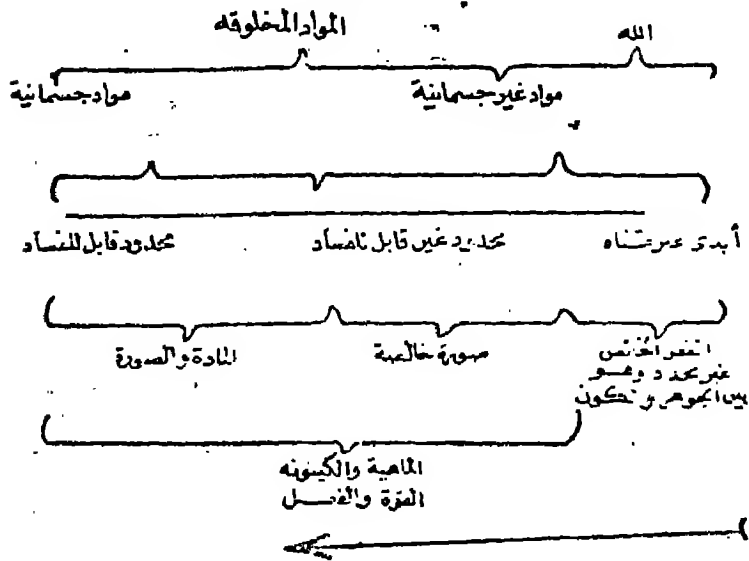 الله
المواد المخلوقه
مواد غير جسمانية
مواد جسمانية
أبدى غير متناه
محدود غير قابل للفساد
محدود قابل للفساد
الفعر الخالص
غير محدد وهو
بين الجوهر و
صورة خالصة
المادة والصورة
الماهية والكينونه
القوة والفعل